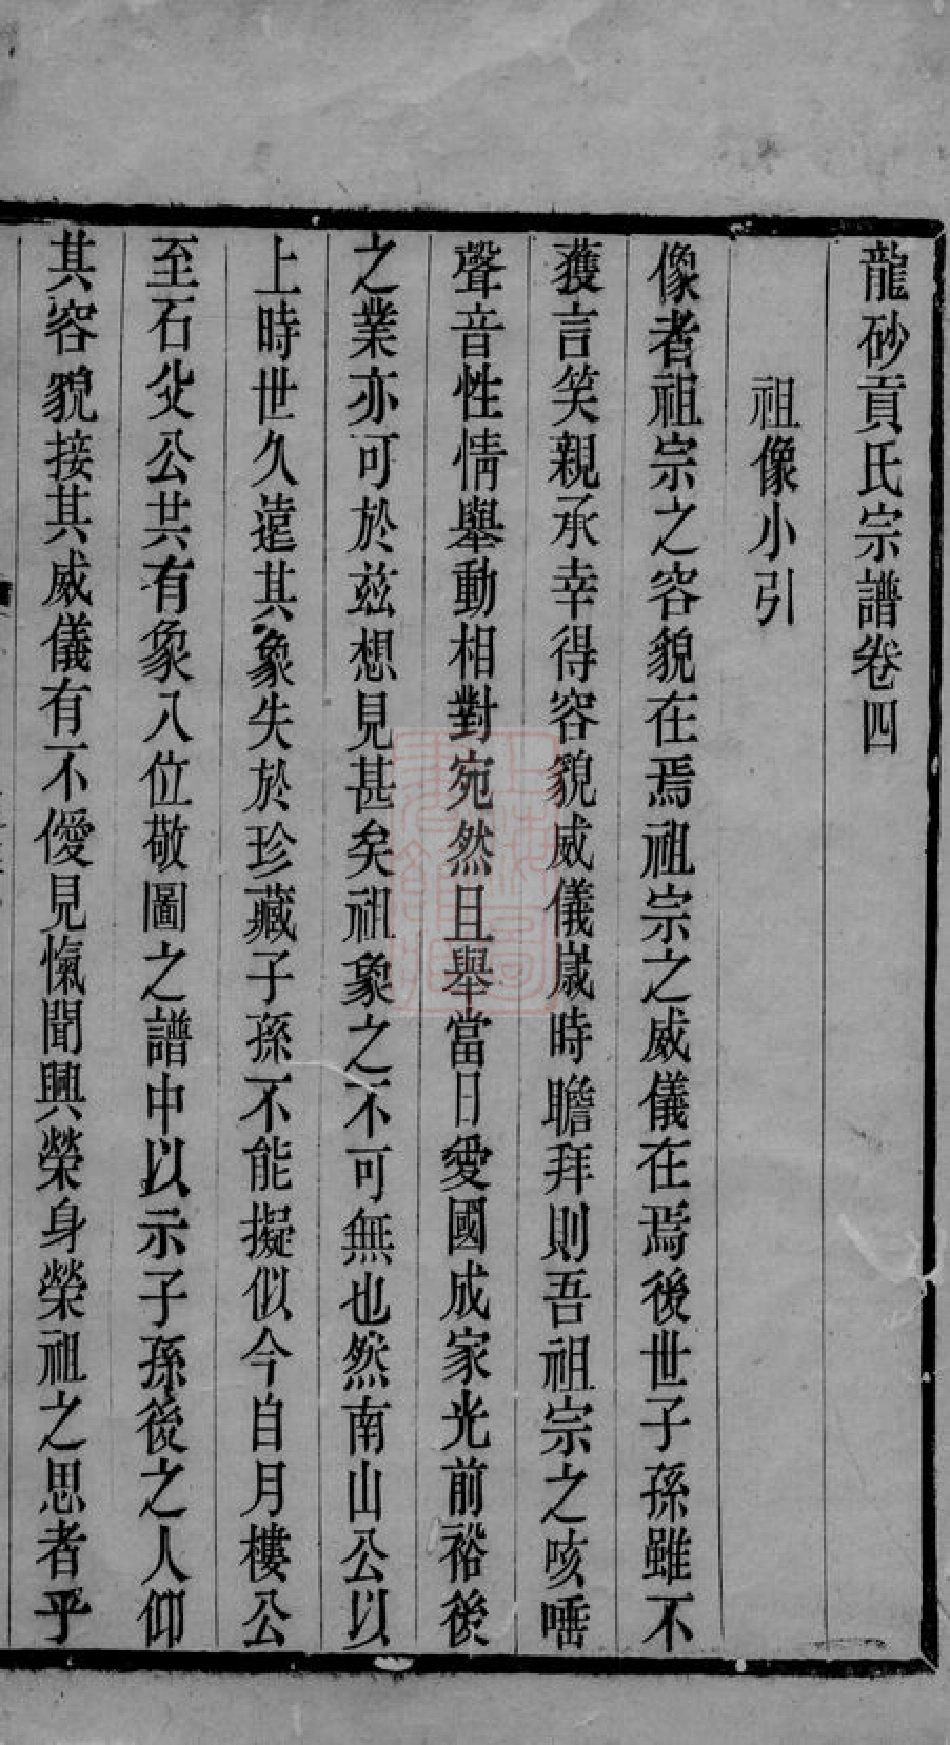 龍砂貢氏宗譜卷四
祖像小引
像者祖宗之容貌在焉祖宗之威儀在焉後世子孫雖不
獲言笑親承幸得容貌威儀歲時瞻拜則吾祖宗之咳唾
聲音性情舉動相對宛然且舉當日愛國成家光前裕後
之業亦可於兹想見甚矣祖象之不可無也然南山公以
上時世久遠其象失於珍藏子孫不能擬似今自月樓公
至石父公共有象八位敬圖之譜中以示子孫後之人仰
其容貌接其威儀有不僾見愾聞興榮身榮祖之思者乎